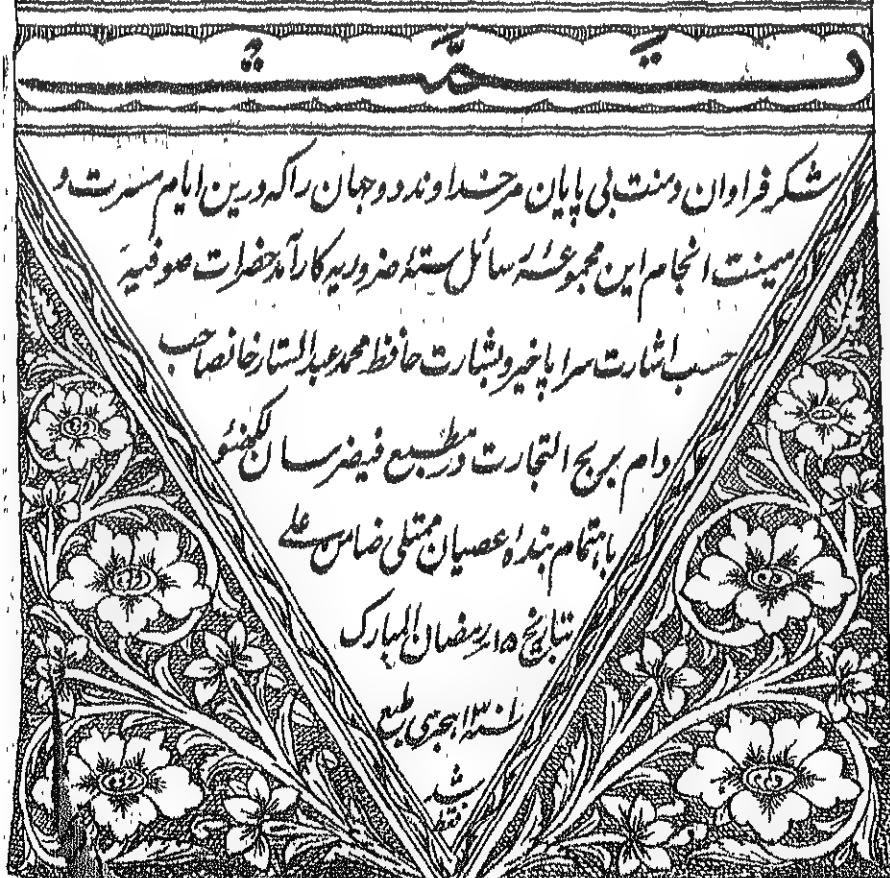 تمّت
شکر فراوان و منت بی پایان مر خداوند دوجهان را که درین ایام مسرت و
میمنت انجام این مجموعهٔ رسائل ستهٔ ضروریه کارآمد حضرات صوفیهٔ
حسب اشارت سراپا خیر و بشارت حافظ محمد عبد الستار خانصاحب
دام بربح التجارت در مطبع فیض رسان لکھنؤ
باہتمام بندہ عصیان ممتلی ضامن علی
بتاریخ ۱۵ رمضان المبارک
ہجری طبع
شد
فقط